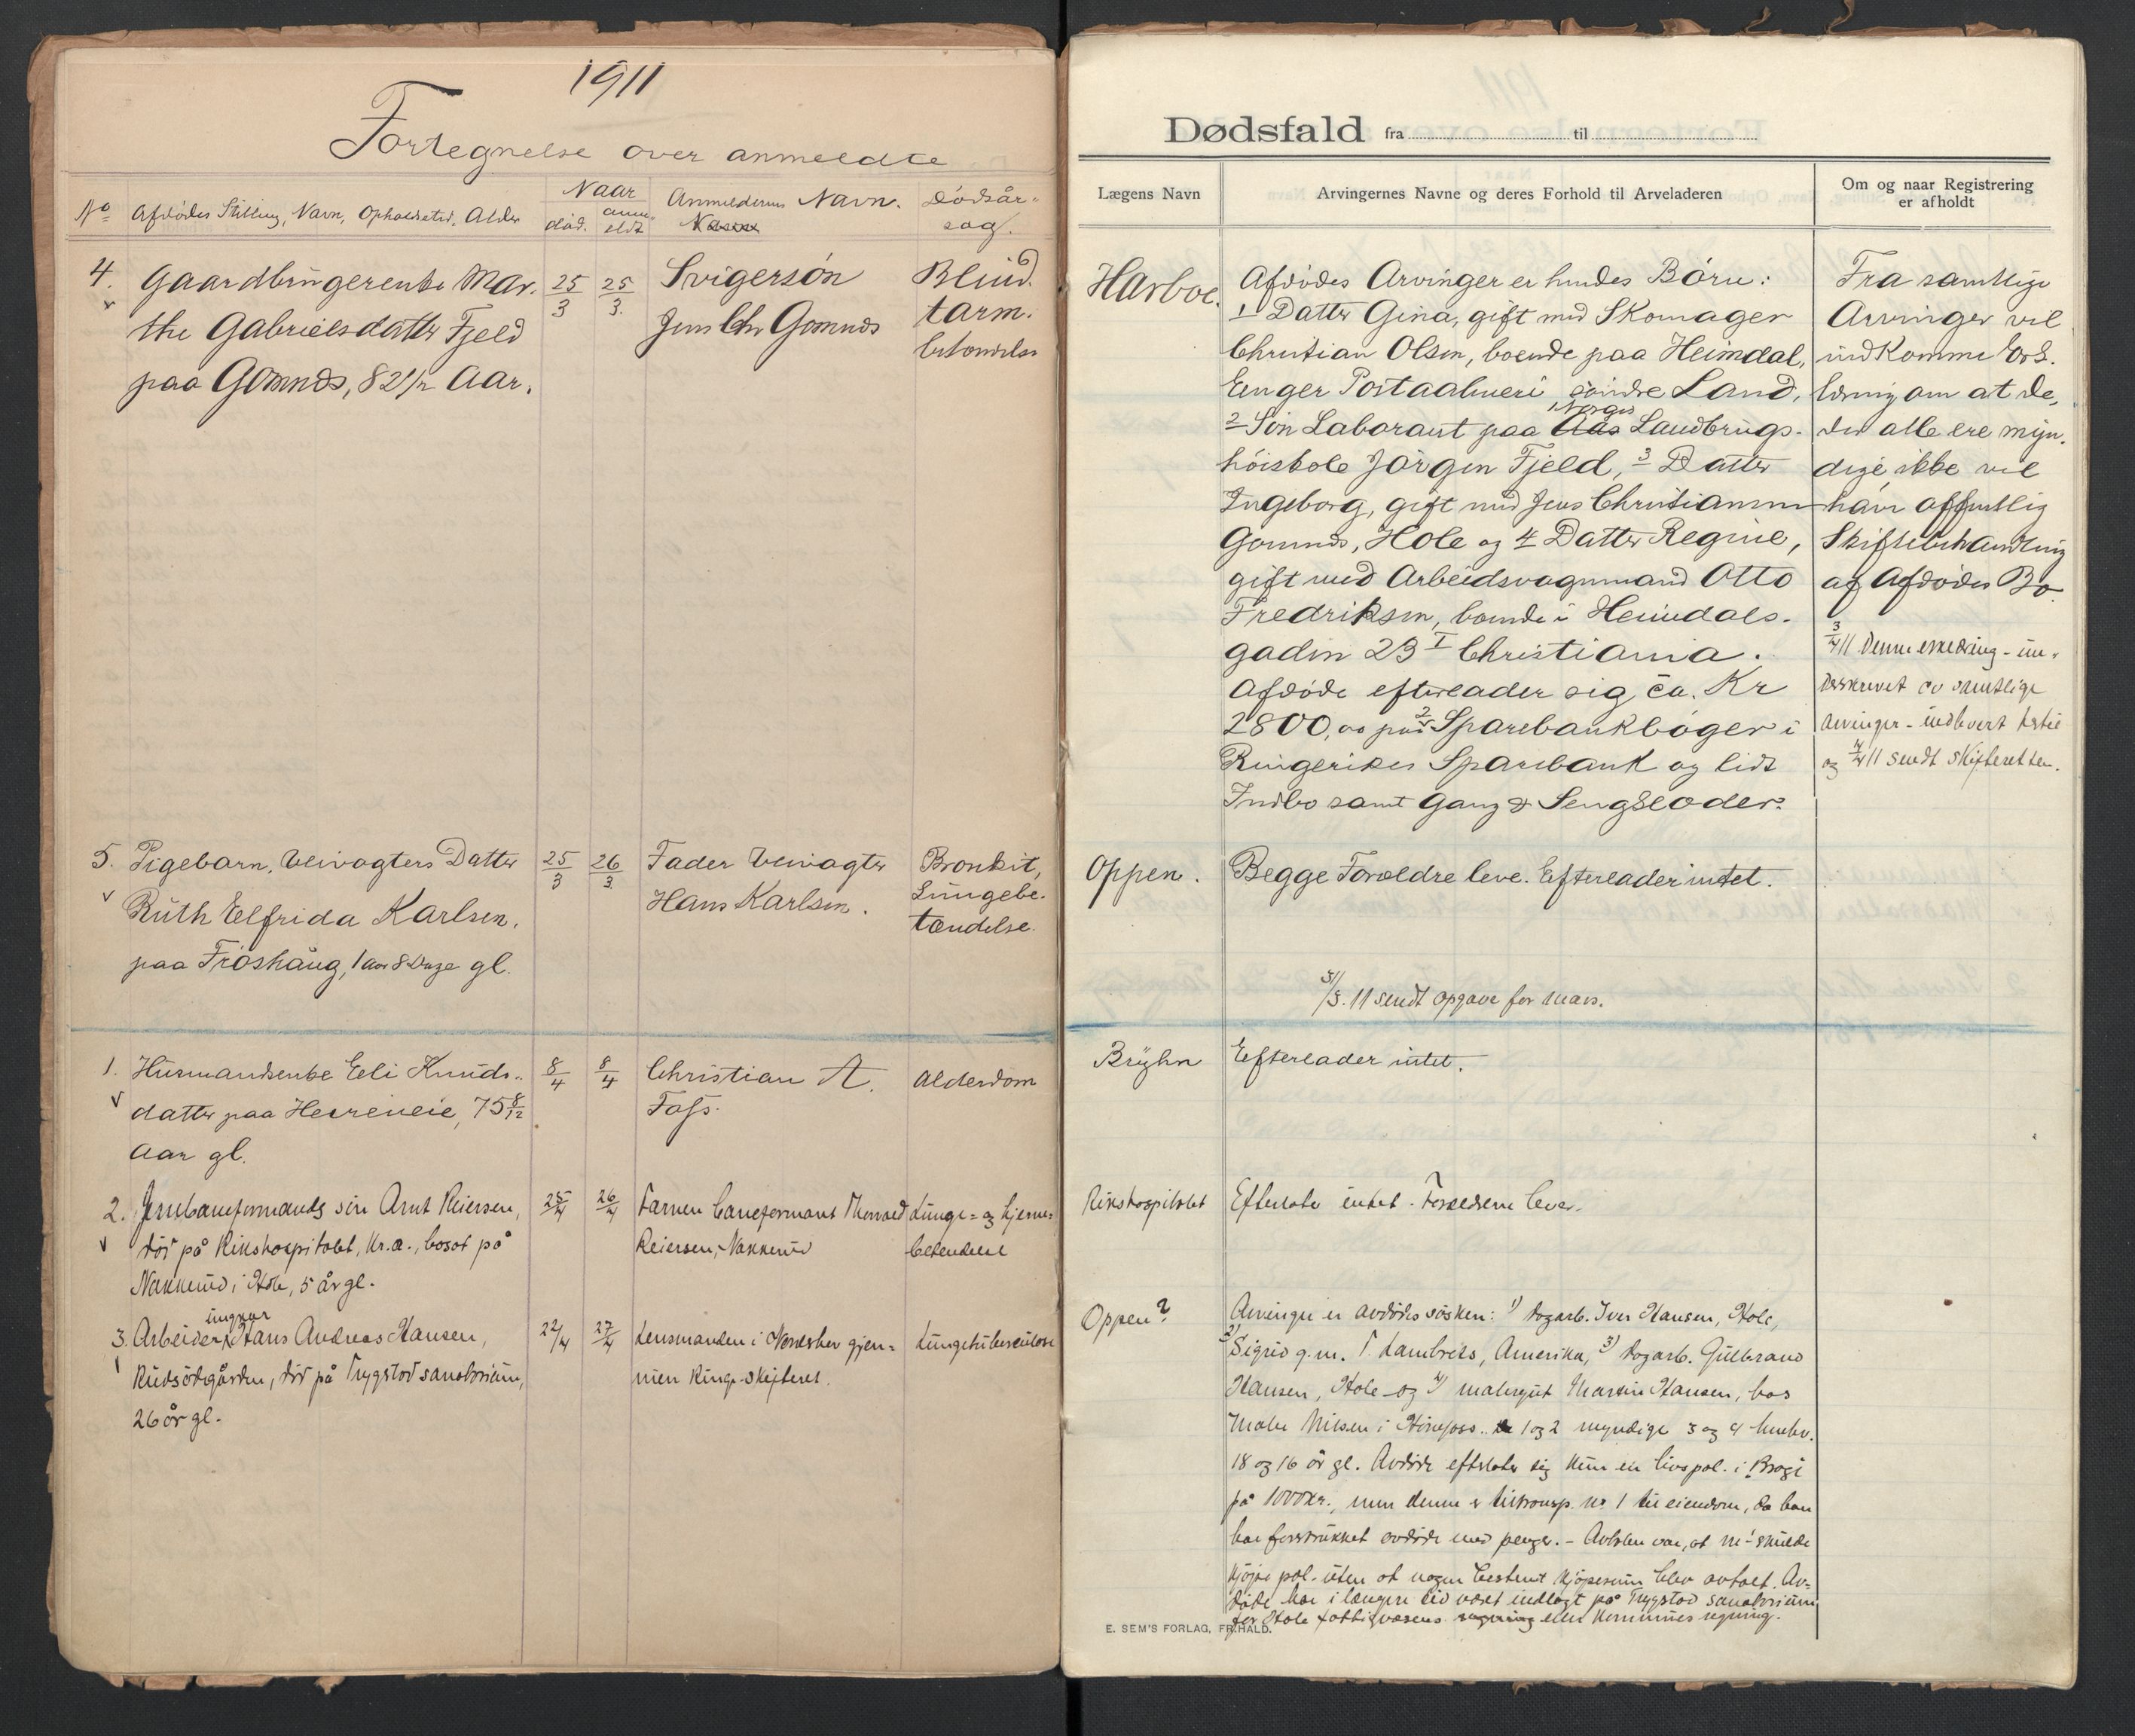 1911
Fortegnelse over anmeldte
No
Afdødes Stilling, Navn, Opholdssted, Alder
Naar
død.
anm-
eldt
Anmelderens Navn.
Navn
Dødsår-
sag.
4.
Gaardbrugerenke Mar-
the Gabrielsdatter Fjeld
paa Gomnes, 82 1/2 Aar.
25/3
25/3.
Svigersøn
Jens Chr Gomnes
Blind-
tarm-
betændelse
5.
Pigebarn, Veivogters Datter
Ruth Elfrida Karlsen,
paa Frøshaug, 1 aar 8 Dage gl.
25/3
26/3.
Fader Veivogter
Hans Karlsen.
Bronkit,
Lungebe-
tændelse.
1.
Husmandsenke Eli Knuds-
datter paa Herreneie, 75 8/12
Aar gl.
8/4
8/4
Christian A.
Foss.
Alderdom
2.
Jernbaneformands søn Arnt Reiersen,
död på Rikshospitalet, Kr.a., bosat på
Nakkerud i Hole, 5 år gl.
25/4
26/4
Farnen baneformand Thorvald
Reiersen, Nakkerud
Lunge- og hjerne-
betendelse
3.
ungkar
Arbeider Hans Andreas Hansen,
Rudsödegården, död på Trygstad sanatorium,
26 år gl.
22/4
27/4
Lensmanden i Norderhov gjen-
nem Ringr. skifteret.
Lungetuberculose
Dødsfald fra til
Lægens Navn
Arvingernes Navne og deres Forhold til Arveladeren
Om og naar Registrering
er afholdt
Harboe.
Afdødes Arvinger er hendes Børn:
1 Datter Gina, gift med Skomager
Christian Olsen, boende paa Heimdal,
Enger Postaabneri søndre Land,
Norges
2 Søn Laborant paa Aas Landbrugs-
høiskole Jørgen Fjeld, 3 Datter
Ingeborg, gift med Jens Christiansen
Gomnes, Hole og 4 Datter Regine,
gift med Arbeidsvognmand Otto
Fredriksen, boende i Heimdals-
gaden 23 I Christiania.
Afdøde efterlader sig ca. Kr
2800,00 paa 2 Sparebankbøger i
Ringerikes Sparebank og lidt
Indbo samt Gang & Sengklæder.
Fra samtlige
Arvinger vil
indkomme Erk-
læring om at de,
der alle ere myn-
dige ikke vil
have offentlig
Skiftebehandling
af Afdødes Bo.
3/4 11 Denne erklæring - un-
derskrevet av samtlige
arvinger - indlevert hertil
og 4/4 11 sendt skifteretten.
Oppen.
Begge Forældre leve. Efterlader intet.
3/5. 11 sendt opgave for mars.
Bryhn
Efterlader intet.
Rikshospitalet
Efterlater intet. Forældrene lever.
Oppen?
Arvinger er avdödes sösken: 1) dagarb. Iver Hansen, Hole,
2) Sigrid g.m. T. Lambreks, Amerika, 3) dagarb. Gulbrand
Hansen, Hole og 4) malergut Martin Hansen, hos
maler Nilsen i Hönefoss. 1 og 2 myndige 3 og 4 henhv.
18 og 16 år gl. Avdöde efterlater sig kun en livspol. i Bragi
på 1000 kr., men denne er transp. nr 1 til eiendom, da han
har forstrukket avdöde med penger. - Avtalen var, at nr 1 skulde
kjöpe pol. uten at nogen bestemt kjöpesum blev avtalt. Av-
döde har i længere tid været indlagt på Trygstad sanatorium
for Hole fattigvæsens regning eller kommunes regning.
E. SEM'S FORLAG, FR.HALD.